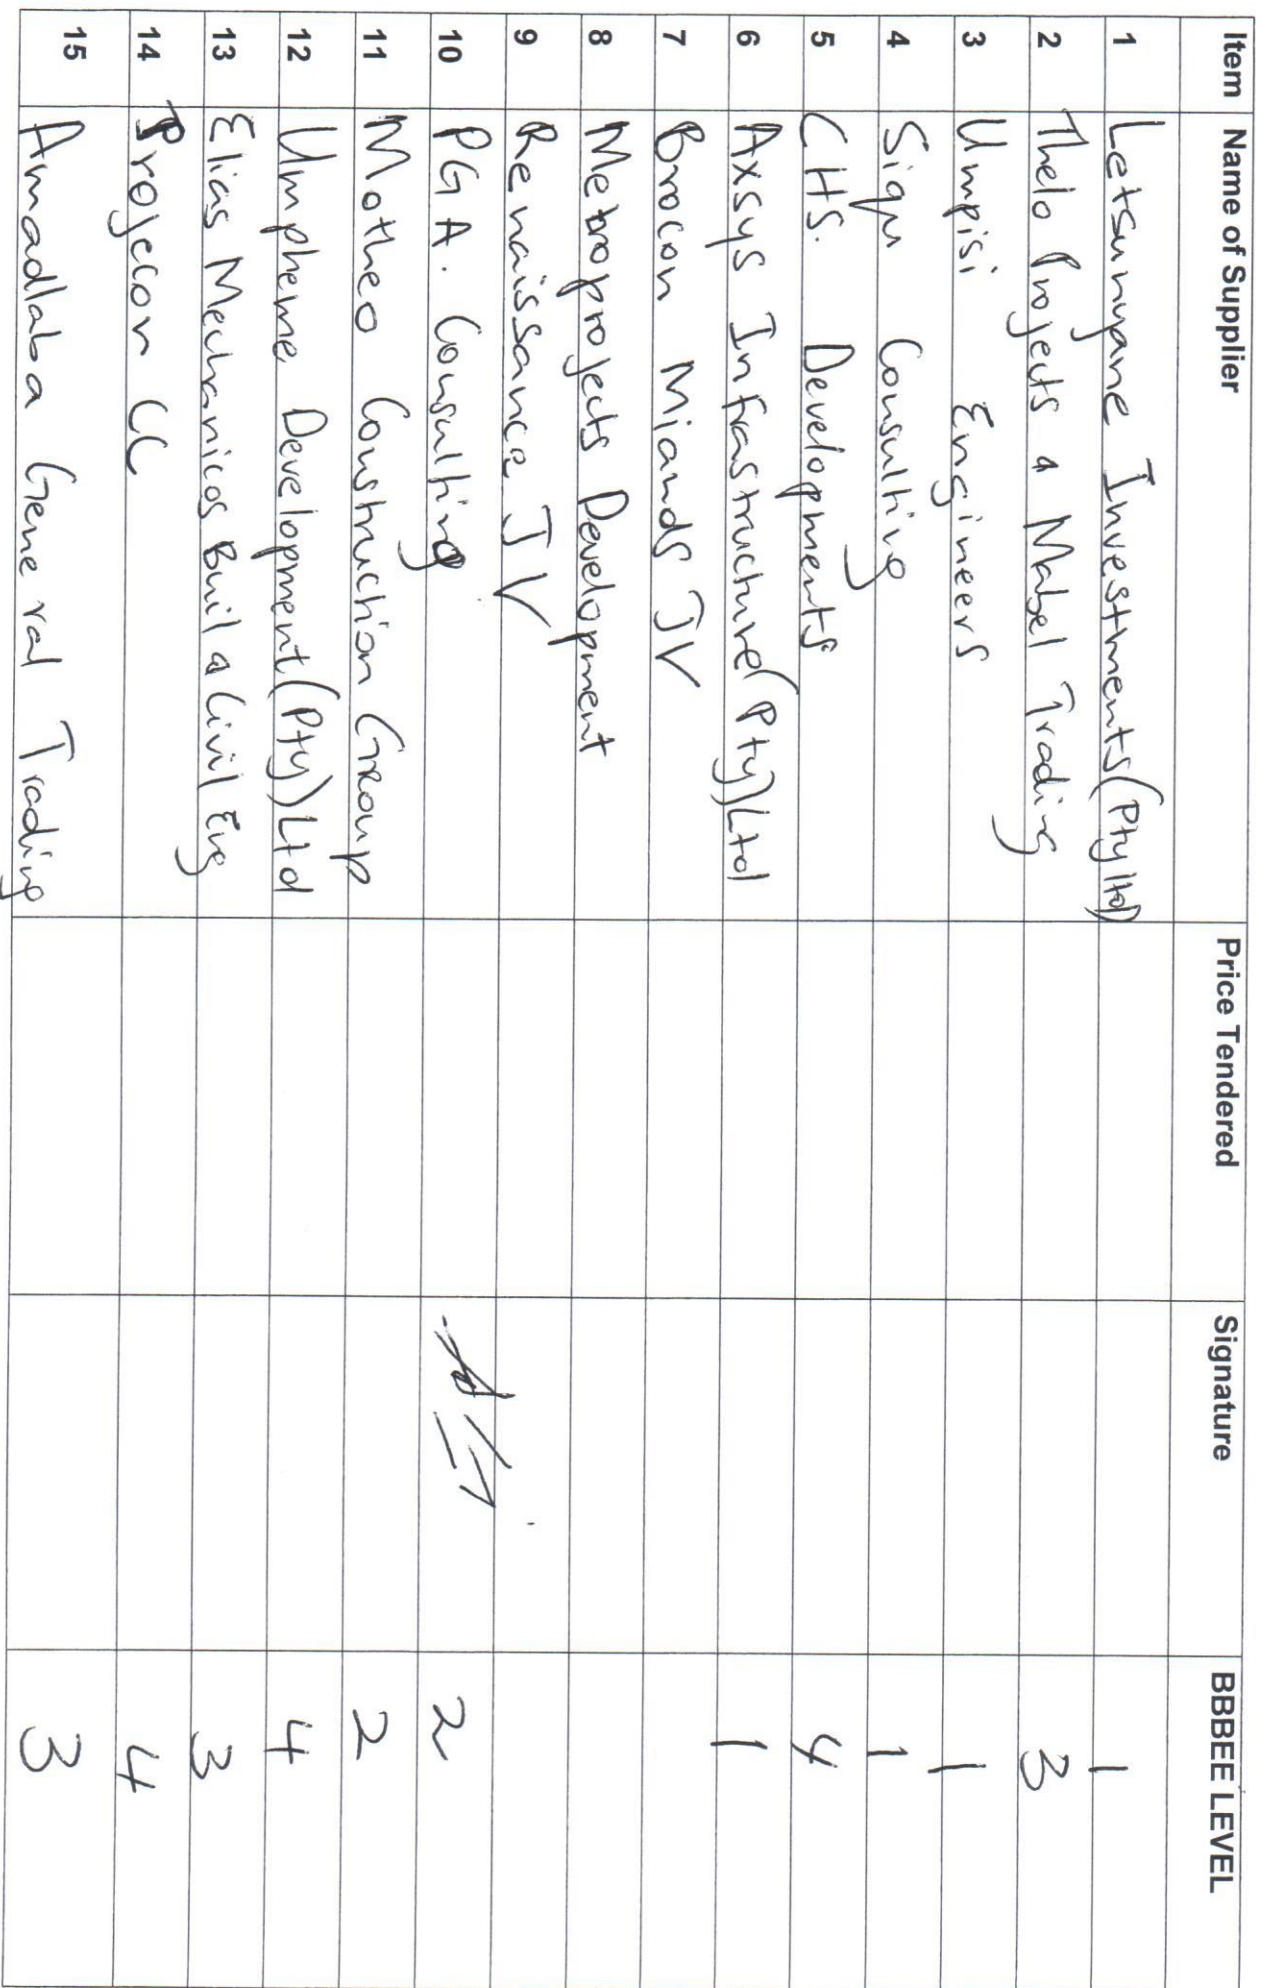 Item Name of Supplier Price Tendered Signature BBBEE LEVEL
1 Letsunyane Investments (Pty ltd) 1
2 Thelo Projects & Mabel Trading 3
3 Umpisi Engineers 1
4 Siqu Consulting 1
5 CHS. Developments 4
6 Axsys Infrastructure (Pty) Ltd 1
7 Brocon Miands JV
8 Metroprojects Development
9 Renaissance JV
10 PGA. Consulting 2
11 Motheo Construction Group 2
12 Umpheme Development (Pty) Ltd 4
13 Elias Mechanicos Buil & Civil Eng 3
14 Projecon CC 4
15 Amadlaba General Trading 3